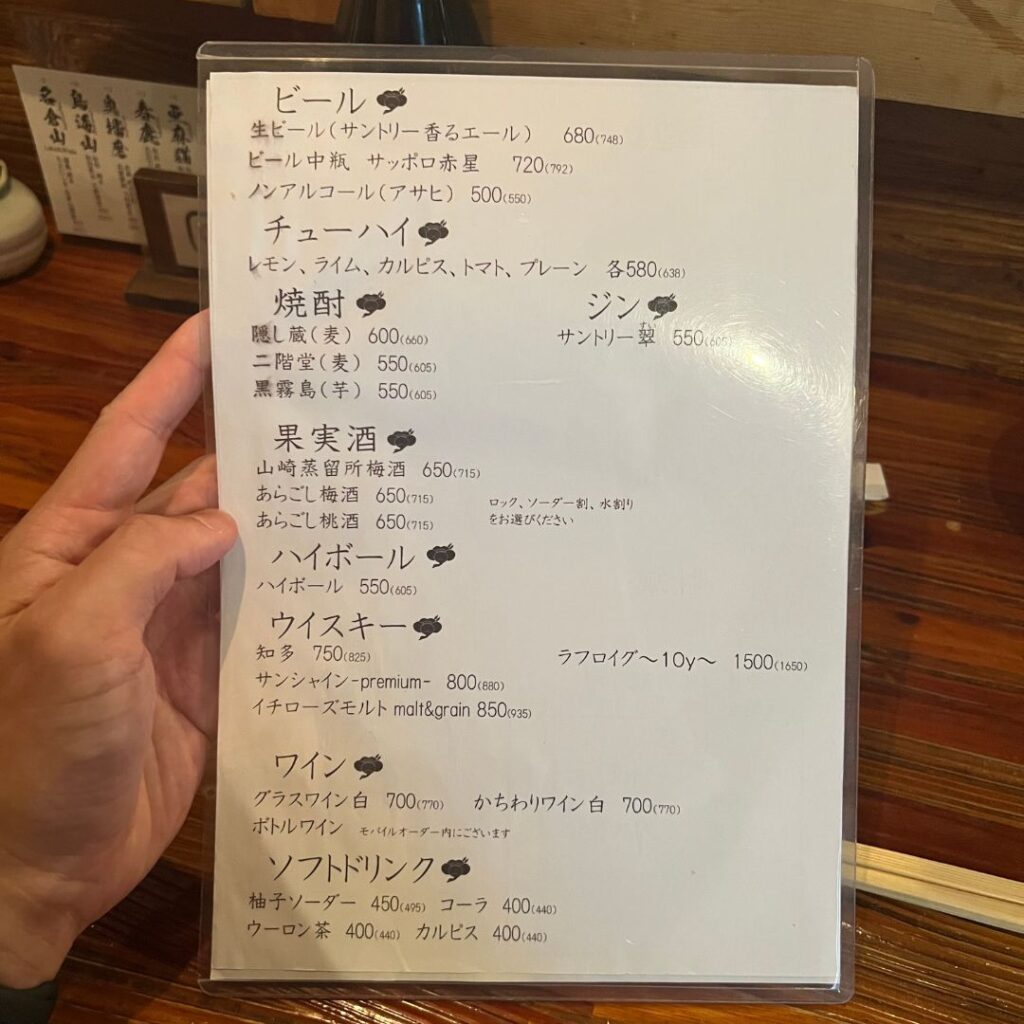 ビール
生ビール（サントリー香るエール） 680(748)
ビール中瓶 サッポロ赤星 720(792)
ノンアルコール（アサヒ） 500(550)
チューハイ
レモン、ライム、カルピス、トマト、プレーン 各580(638)
焼酎
隠し蔵（麦） 600(660)
二階堂（麦） 550(605)
黒霧島（芋） 550(605)
ジン
すい
サントリー翠 550(605)
果実酒
山崎蒸留所梅酒 650(715)
あらごし梅酒 650(715)
あらごし桃酒 650(715)
ロック、ソーダー割、水割り
をお選びください
ハイボール
ハイボール 550(605)
ウイスキー
知多 750(825)
サンシャイン-premium- 800(880)
イチローズモルト malt&grain 850(935)
ラフロイグ～10y～ 1500(1650)
ワイン
グラスワイン白 700(770) かちわりワイン白 700(770)
ボトルワイン モバイルオーダー内にございます
ソフトドリンク
柚子ソーダー 450(495) コーラ 400(440)
ウーロン茶 400(440) カルピス 400(440)
奥播磨
鳥海山
名倉山